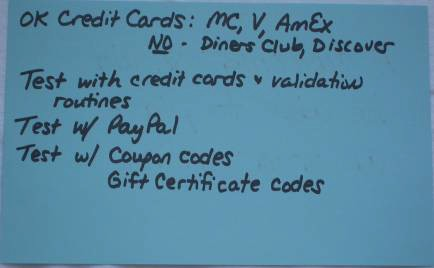 OK Credit Cards: MC, V, AmEx
NO - Diners Club, Discover
Test with credit cards & validation
routines
Test w/ PayPal
Test w/ Coupon codes
Gift Certificate codes